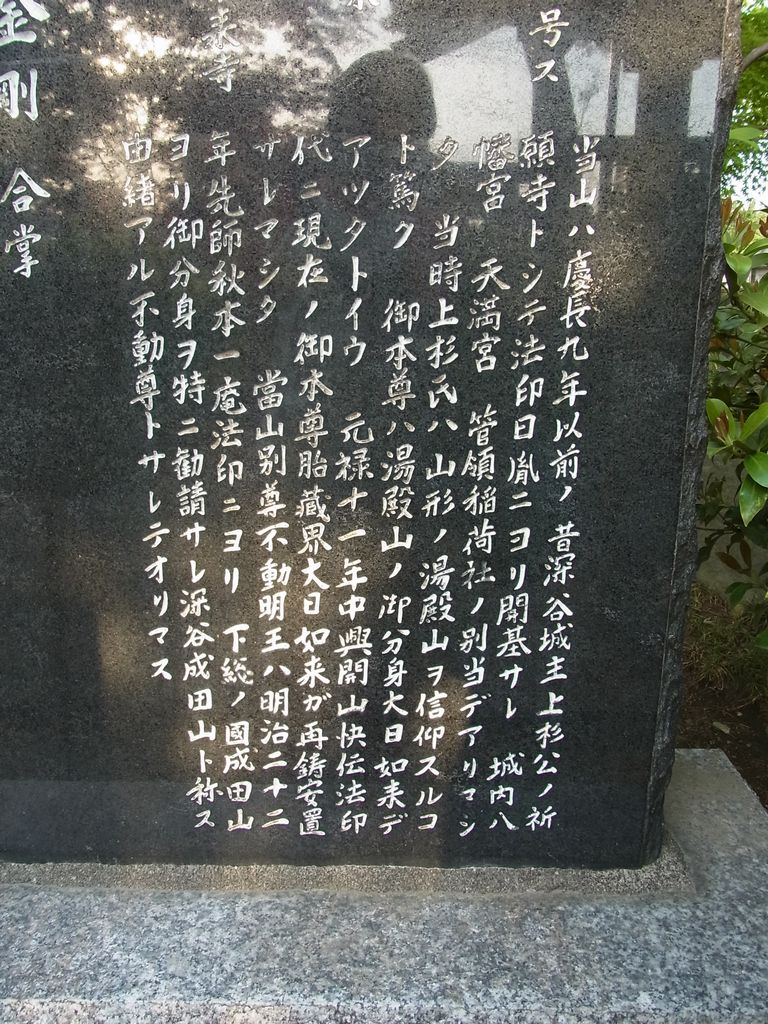 号ス
当山ハ慶長九年以前ノ昔深谷城主上杉公ノ祈
願寺トシテ法印日胤ニヨリ開基サレ　城内八
幡宮　天満宮　管領稲荷社ノ別当デアリマシ
タ　当時上杉氏ハ山形ノ湯殿山ヲ信仰スルコ
ト篤ク　御本尊ハ湯殿山ノ御分身大日如来デ
アツタトイウ　元禄十一年中興開山快伝法印
代ニ現在ノ御本尊胎蔵界大日如来ガ再鋳安置
サレマシタ　當山別尊不動明王ハ明治二十二
年先師秋本一庵法印ニヨリ　下総ノ國成田山
ヨリ御分身ヲ特ニ勧請サレ深谷成田山ト称ス
由緒アル不動尊トサレテオリマス
来寺
金剛　合掌